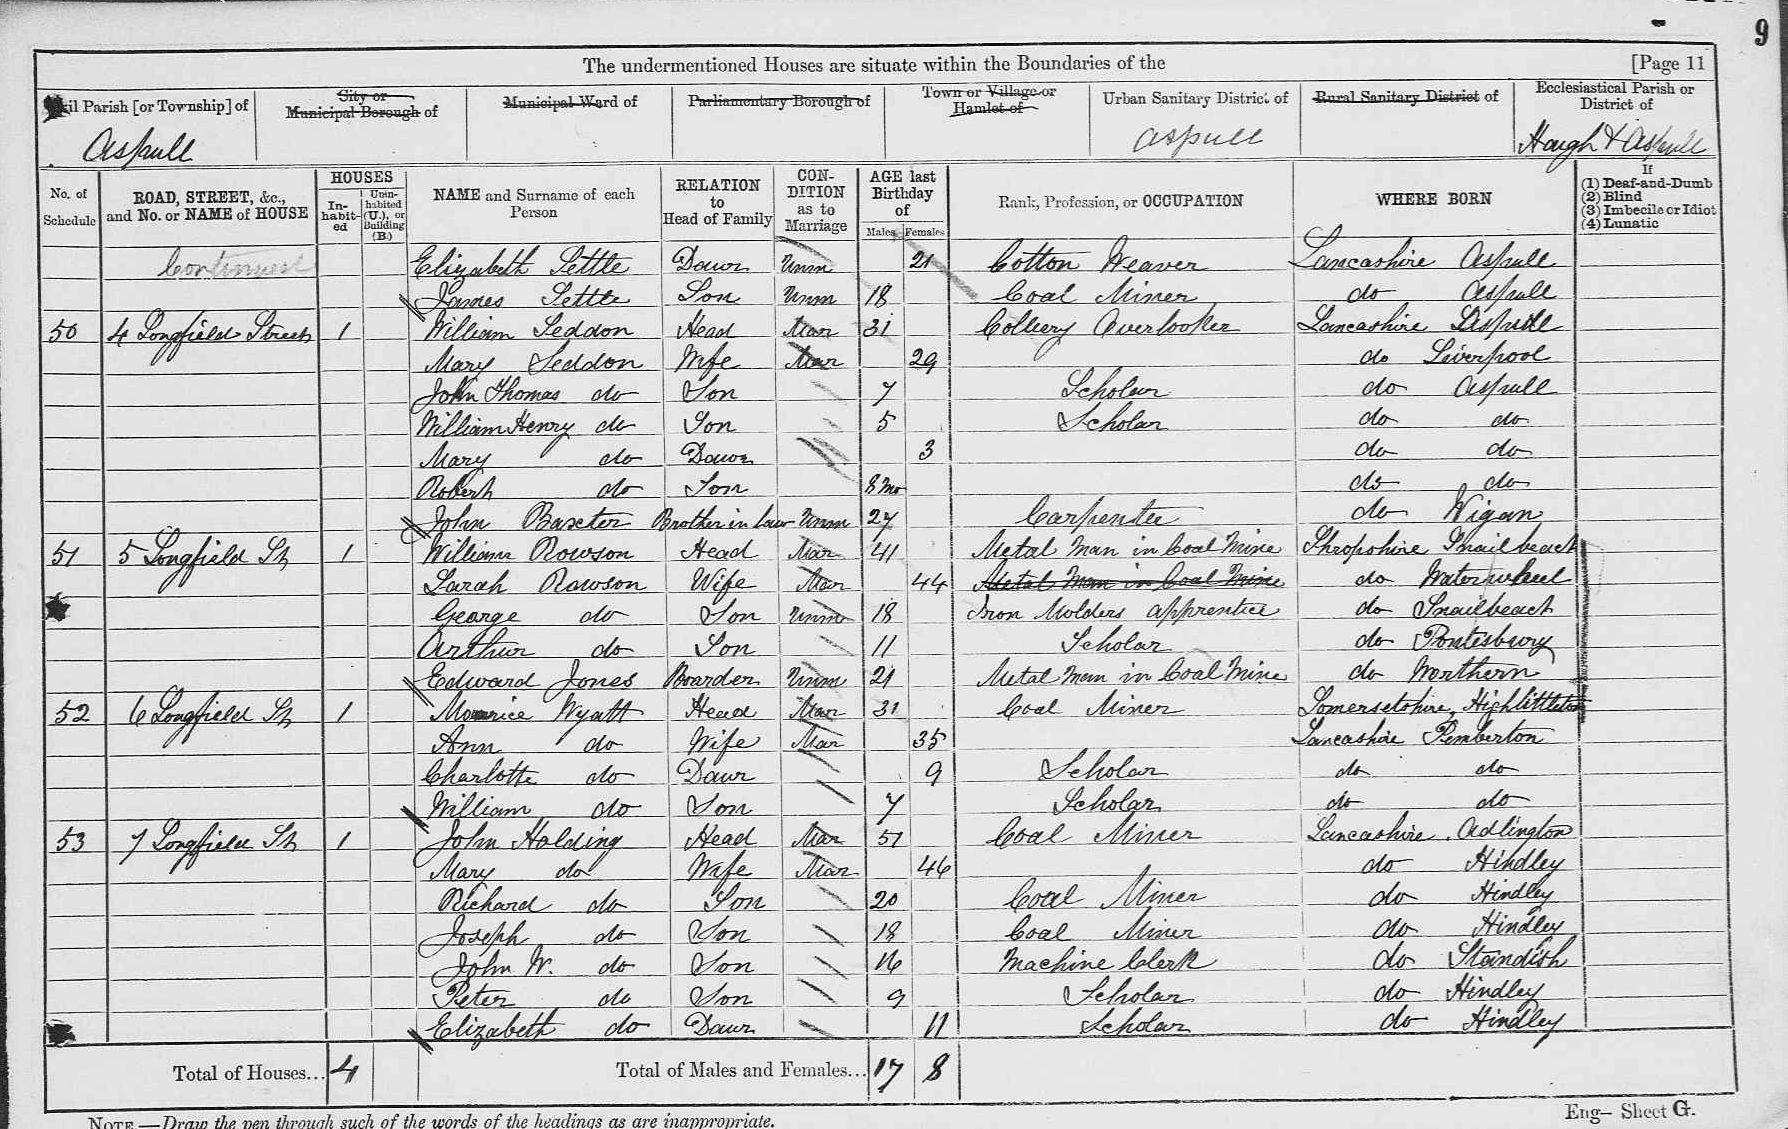 9
The undermentioned Houses are situate within the Boundaries of the [Page 11
il Parish [or Township] of City or Municipal Borough of Municipal Ward of Parliamentary Borough of Town or Village or Hamlet of Urban Sanitary District of Rural Sanitary District of Ecclesiastical Parish or District of
Aspull Aspull Haigh & Aspull
No. of Schedule ROAD, STREET, &c., and No. or NAME of HOUSE HOUSES In-habit-ed Unin-habited (U.), or Building (B.) NAME and Surname of each Person RELATION to Head of Family CON-DITION as to Marriage AGE last Birthday of Males Females Rank, Profession, or OCCUPATION WHERE BORN If (1) Deaf-and-Dumb (2) Blind (3) Imbecile or Idiot (4) Lunatic
Continued Elizabeth Settle Daur Unm 21 Cotton Weaver Lancashire Aspull
James Settle Son Unm 18 Coal Miner do Aspull
50 4 Longfield Street 1 William Seddon Head Mar 31 Colliery Overlooker Lancashire Aspull
Mary Seddon Wife Mar 29 do Liverpool
John Thomas do Son 7 Scholar do Aspull
William Henry do Son 5 Scholar do do
Mary do Daur 3 do do
Robert do Son 8 mo do do
John Baxter Brother in law Unm 27 Carpenter do Wigan
51 5 Longfield St 1 William Rowson Head Mar 41 Metal Man in Coal Mine Shropshire Snailbeach
Sarah Rowson Wife Mar 44 Metal Man in Coal Mine do Waterwheel
George do Son Unm 18 Iron Molders apprentice do Snailbeach
Arthur do Son 11 Scholar do Pontesbury
Edward Jones Boarder Unm 21 Metal Man in Coal Mine do Worthern
52 6 Longfield St 1 Maurice Wyatt Head Mar 31 Coal Miner Somersetshire, Highlittleton
Ann do Wife Mar 35 Lancashire Pemberton
Charlotte do Daur 9 Scholar do do
William do Son 7 Scholar do do
53 7 Longfield St 1 John Holding Head Mar 51 Coal Miner Lancashire Adlington
Mary do Wife Mar 46 do Hindley
Richard do Son 20 Coal Miner do Hindley
Joseph do Son 18 Coal Miner do Hindley
John W. do Son 16 Machine Clerk do Standish
Peter do Son 9 Scholar do Hindley
Elizabeth do Daur 11 Scholar do Hindley
Total of Houses... 4 Total of Males and Females... 17 8
NOTE.—Draw the pen through such of the words of the headings as are inappropriate.
Eng– Sheet G.